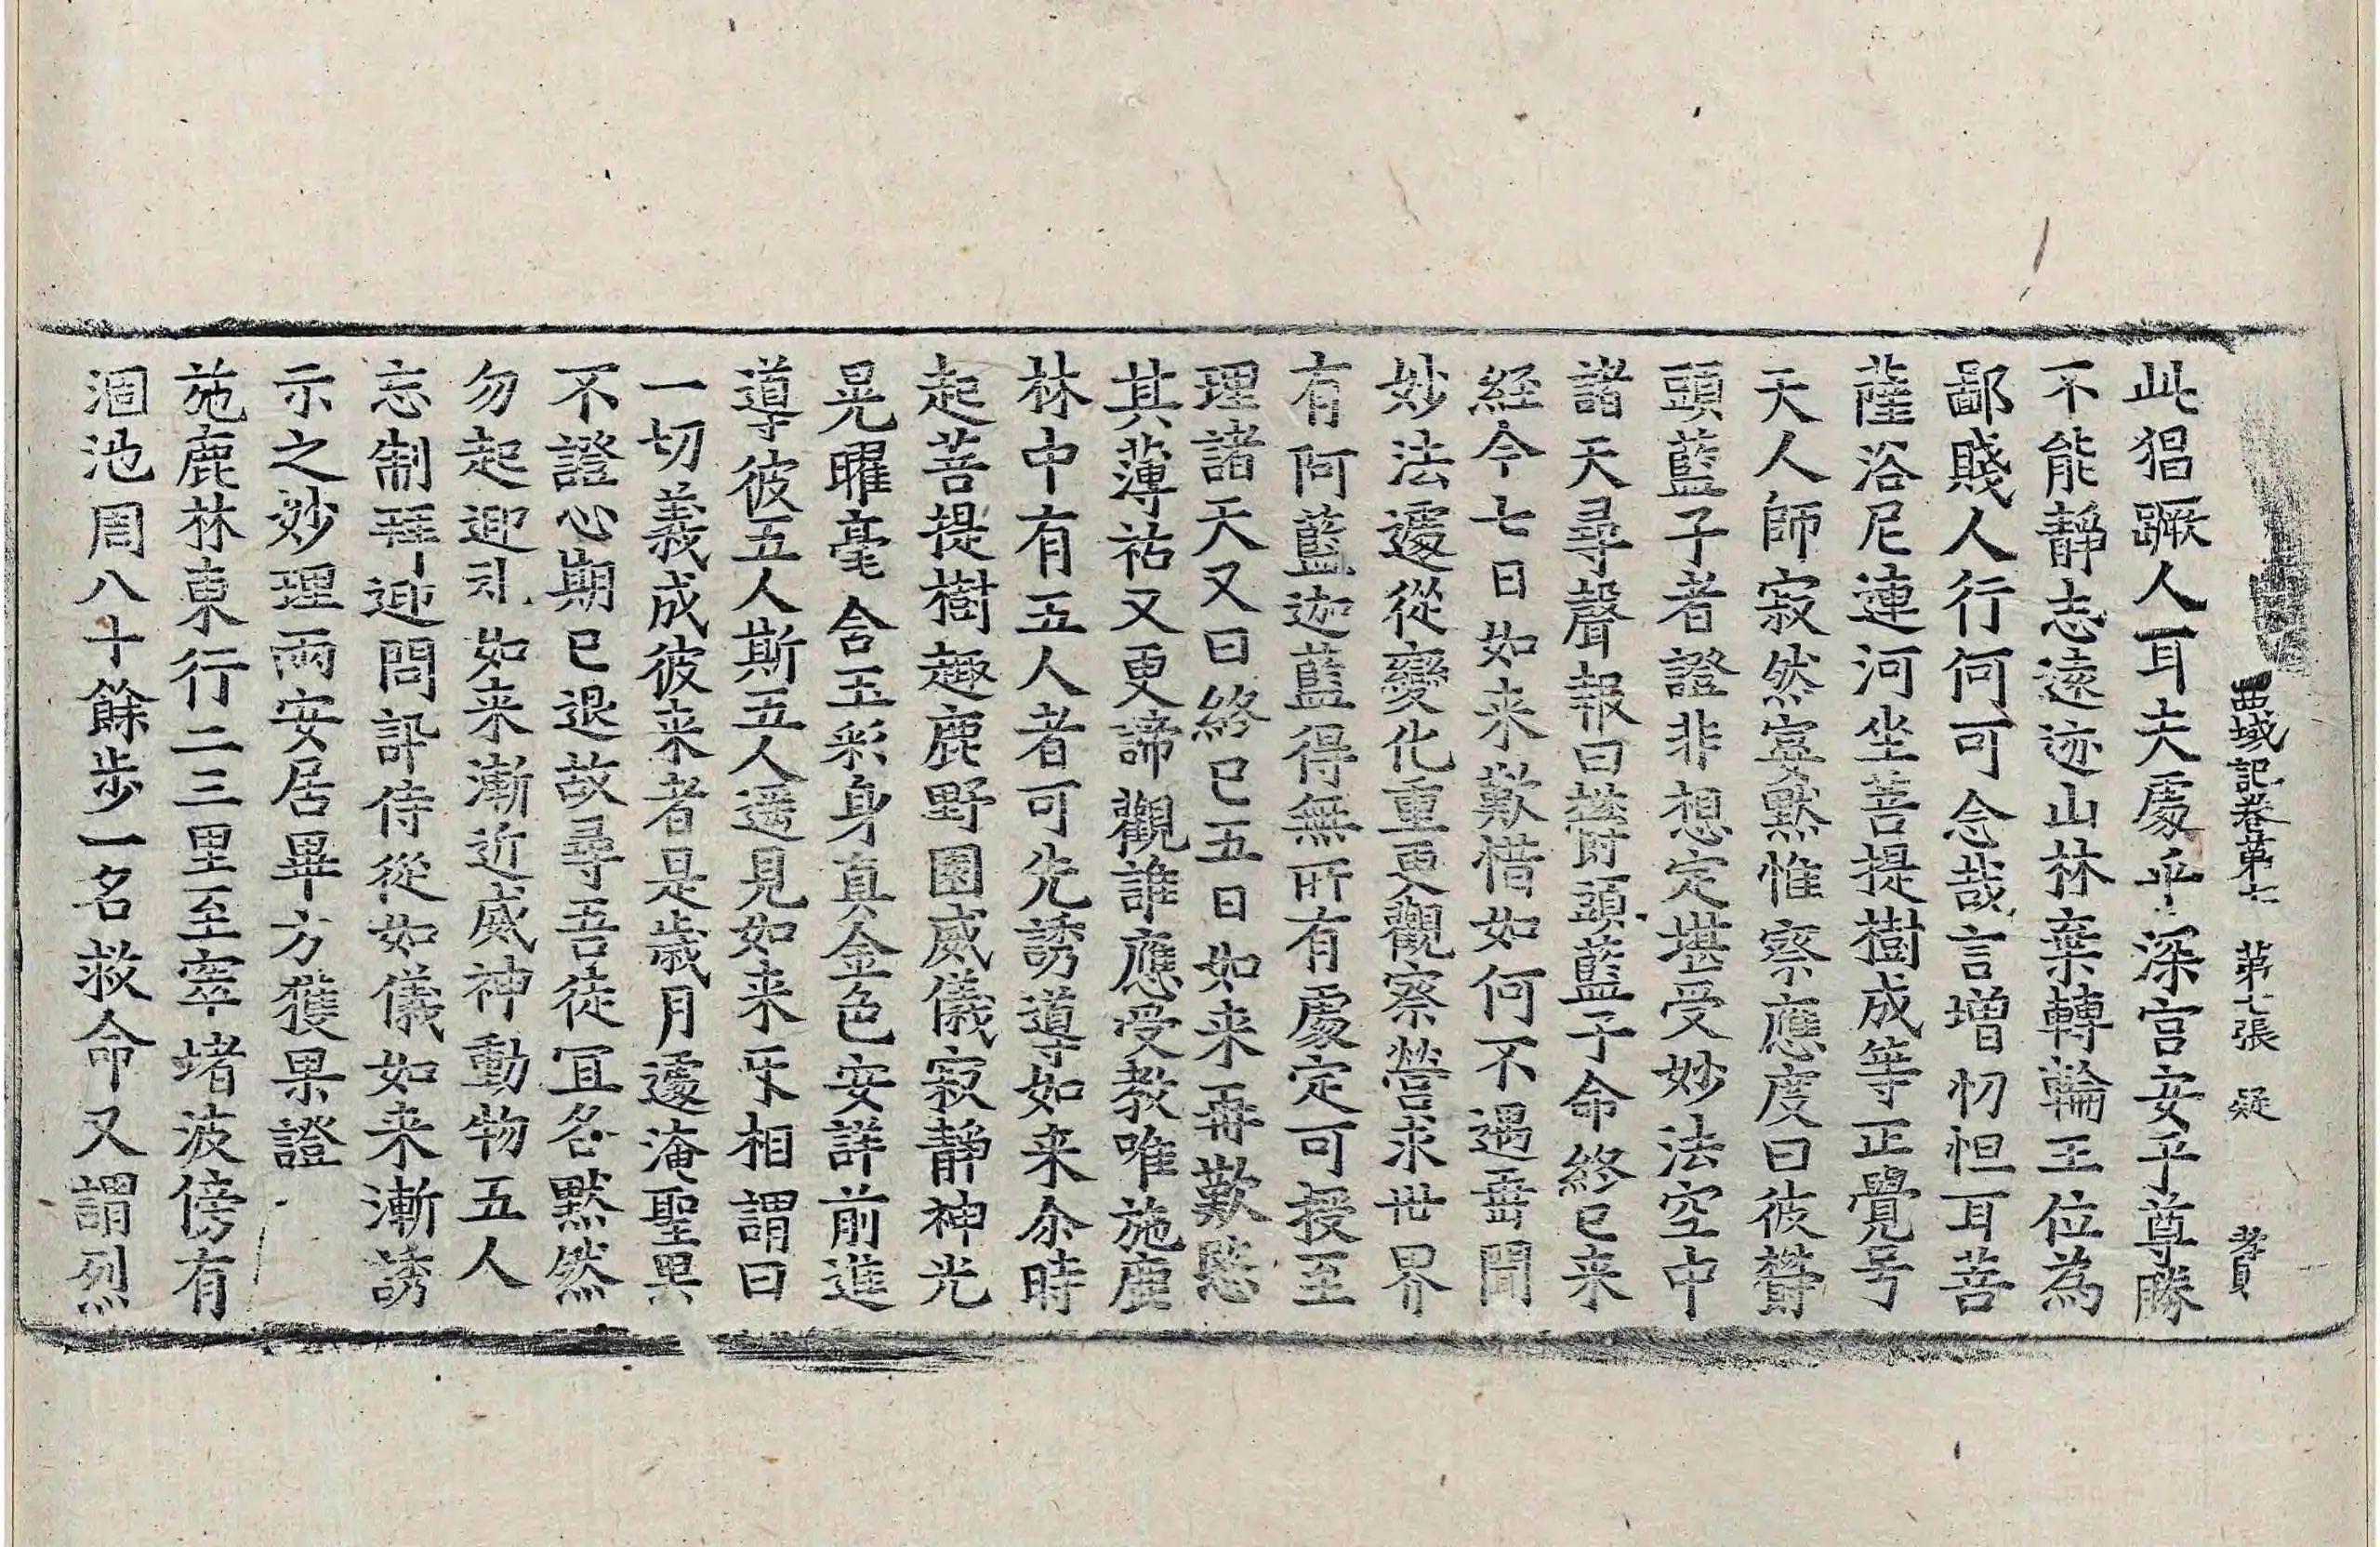 西域記卷第七 第七張 疑 孝貟
此猖蹶人耳夫處乎深宫安乎尊勝
不能靜志遠迹山林棄轉輪王位為
鄙賤人行何可念哉言增忉怛耳菩
薩浴尼連河坐菩提樹成等正覺号
天人師寂然宴默惟察應度曰彼欝
頭藍子者證非想定堪受妙法空中
諸天尋聲報曰欝頭藍子命終已来
経今七日如来歎惜如何不遇垂聞
妙法遽從變化重更觀察營求世界
有阿藍迦藍得無所有處定可授至
理諸天又曰終已五日如来再歎愍
其薄祐又更諦觀誰應受教唯施鹿
林中有五人者可先誘導如来尒時
起菩提樹趣鹿野園威儀寂靜神光
晃曜毫含玉彩身真金色安詳前進
導彼五人斯五人遥見如来㸦相謂曰
一切義成彼来者是歳月遽淹聖果
不證心期已退故尋吾徒冝各默然
勿起迎礼如来漸近威神動物五人
忘制拜迎問訊侍從如儀如来漸誘
示之妙理兩安居畢方獲果證
施鹿林東行二三里至窣堵波傍有
涸池周八十餘步一名救命又謂烈